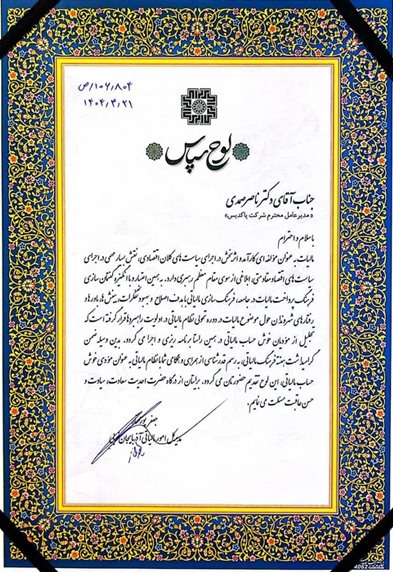 ۱۰۶,۸۰۴/ص
۱۴۰۴,۴,۲۱
لوح سپاس
جناب آقای دکتر ناصر صمدی
«مدیرعامل محترم شرکت پاکدیس»
با سلام و احترام
مالیات به عنوان مؤلفه ای کارآمد و اثربخش در اجرای سیاست های کلان اقتصادی، نقش بسیار مهمی در اجرای
سیاست های اقتصاد مقاومتی ابلاغی از سوی مقام معظم رهبری دارد. به همین اعتبار و با انگیزه گفتمان سازی
فرهنگ پرداخت مالیات در جامعه، فرهنگ سازی مالیاتی با هدف اصلاح و بهبود تفکرات، بینش ها، باورها و
رفتارهای شهروندان حول موضوع مالیات در دوره تحولی نظام مالیاتی در اولویت راهبردها قرار گرفته است که
تجلیل از مؤدیان خوش حساب مالیاتی در همین راستا برنامه ریزی و اجرا می گردد. بدین وسیله ضمن
گرامیداشت هفته فرهنگ مالیاتی، به رسم قدرشناسی از همراهی و همگامی شما با نظام مالیاتی به عنوان مؤدی خوش
حساب مالیاتی، این لوح تقدیم حضورتان می گردد. برایتان از درگاه حضرت احدیت سعادت، سیادت و
حسن عاقبت مسئلت می نمایم.
مدیرکل امور مالیاتی آذربایجان غربی